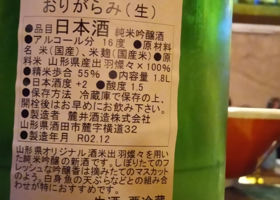 おりがらみ(生)
●品目 日本酒 純米吟醸酒
●アルコール分 16度 ●原材料
名 米(国産)、米麹(国産米)●原
料米 山形県産出羽燦々×100%
●精米歩合 55% ●内容量 1.8L
●日本酒度 +2 ●酸度 1.5
●保存方法 冷蔵庫で保存の上、
開栓後はお早めにお飲み下さい。
●製造者 麓井酒造株式会社
山形県酒田市麓字横道32
●製造年月 R02.12
山形県オリジナル酒米出羽燦々を用い
た純米吟醸の新酒です。しぼりたてのフ
レッシュな吟醸香は摘みたてのマスカット
のよう。白身魚の天ぷらなどとの組み合
わせが特におすすめです。
生酒 要冷蔵